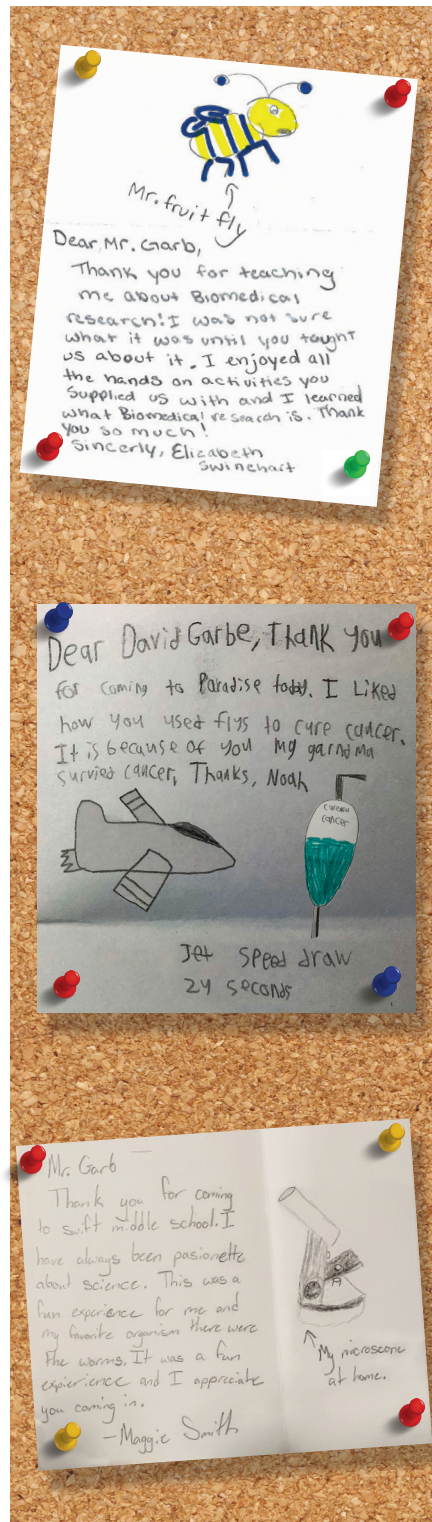 Mr. fruit fly
Dear, Mr. Garb,
Thank you for teaching
me about Biomedical
research! I was not sure
what it was until you taught
us about it. I enjoyed all
the hands on activities you
supplied us with and I learned
what Biomedical research is. Thank
you so much!
Sincerly, Elizabeth
Swinehart
Dear David Garbe, Thank you
for coming to Paradise today. I Liked
how you used flys to cure cancer.
It is because of you my garndma
survied cancer, Thanks, Noah
cancer
Jet speed draw
24 seconds
Mr. Garb
Thank you for coming
to swift middle school. I
have always been pasionette
about science. This was a
fun experience for me and
my favorite organism there were
the worms. It was a fun
expierience and I appreciate
you coming in.
-Maggie Smith
My microscope
at home.